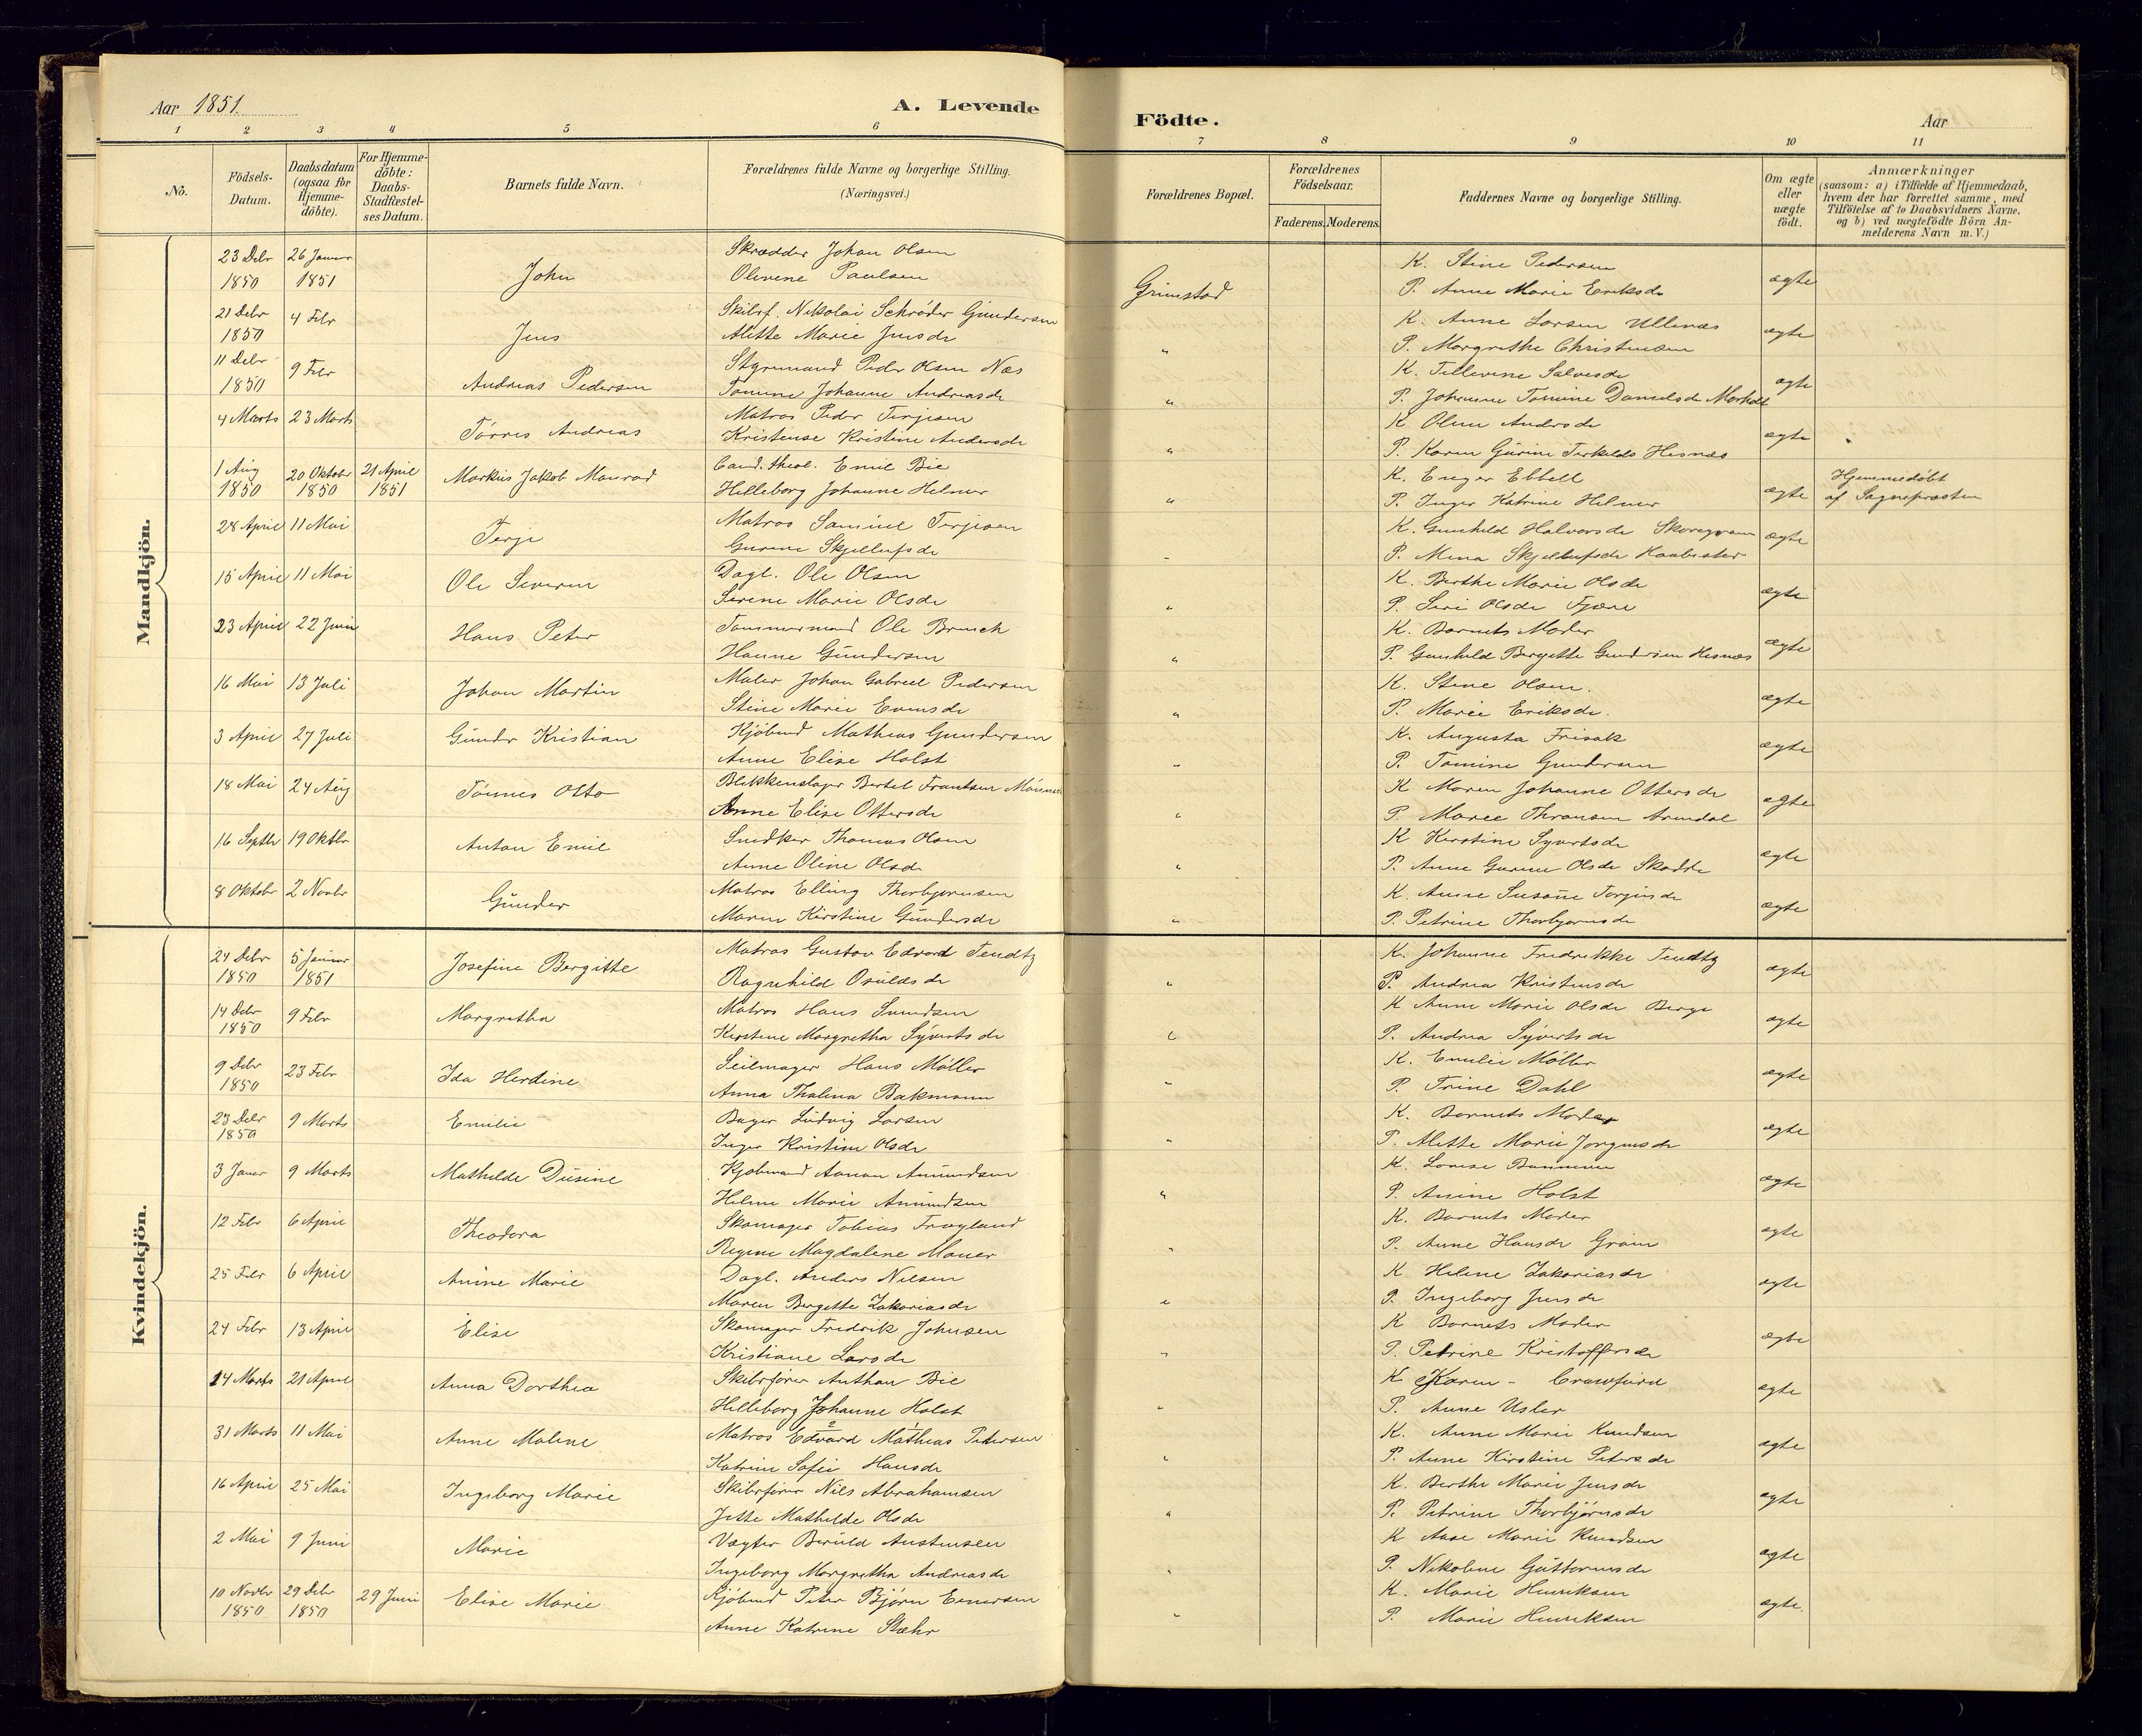 Aar 1851.
A. Levende
Födte.
Aar
1 2 3 4 5 6 7 8 9 10 11
No.
Födsels-
Datum.
Daabsdatum
(ogsaa for
Hjemme-
döbte).
For Hjemme-
döbte:
Daabs-
Stadfæstel-
ses Datum.
Barnets fulde Navn.
Forældrenes fulde Navne og borgerlige Stilling.
(Næringsvei.)
Forældrenes Bopæl.
Forældrenes
Födselsaar.
Faderens. Moderens.
Faddernes Navne og borgerlige Stilling.
Om ægte
eller
uægte
födt.
Anmærkninger
(saasom: a) i Tilfælde af Hjemmedaab,
hvem der har forrettet samme, med
Tilföielse af to Daabsvidners Navne,
og b) ved uægtefödte Börn An-
melderens Navn m. V.)
Mandkjön.
23 Debr 26 Januar Skrædder Johan Olsen K. Stine Pedersen
1850 1851 John Olevene Paulsen Grimstad P. Anne Marie Eriksdr ægte
21 Debr 4 Febr Skibsf. Nikolai Schrøder Gundersen K. Anne Larsen Ullenæs
1850 Jens Alette Marie Jensdr " P. Margrethe Christensen ægte
11 Debr 9 Febr Styrmand Peder Olsen Næs K. Tellevine Salvesdr
1850 Andreas Pedersen Tomine Johanne Andreasdr " P. Johanne Tomine Danielsdr ægte
4 Marts 23 Marts Matros Peder Terjesen K Olene Andersdr
Tørres Andreas Kristense Kristine Andersdr " P. Karen Gurine Terkelds Hesnæs ægte
1 Aug 20 Oktober 21 April Markus Jakob Monrad Cand. theol. Emil Bie K. Enger Ebbell Hjemmedøbt
1850 1850 1851 Helleborg Johanne Helmer " P. Inger Katrine Helmer ægte af Sognepræsten
28 April 11 Mai Matros Samuel Terjesen K. Gunhild Halvorsdr
Terje Gurine Skjellufsdr " P. Mina Skjellufsdr ægte
15 April 11 Mai Dagl. Ole Olsen K. Berthe Marie Olsdr
Ole Severin Serene Marie Olsdr " P. Seri Olsdr Fjære ægte
23 April 22 Juni Ole Brusch K. Barnets Moder
Hans Peter Hanne Gundersen " P. Gunhild Bergette Gundersen Hesnæs ægte
16 Mai 13 Juli Maler Johan Gabriel Pedersen K. Stine Olsen.
Johan Martin Stine Marie Evensdr " P. Marie Eriksdr. ægte
3 April 27 Juli Kjøbmd Mathias Gundersen K. Augusta Frisak
Gunder Kristian Anne Elise Holst " P. Tomine Gundersen ægte
18 Mai 24 Aug Blikkenslager Bertel Frantsen K Maren Johanne Ottersdr
Tønnes Otto Anne Elise Ottersdr " P. Maree Thronsen Arendal ægte
16 Septbr 19 Oktbr Snedker Thomas Olsen K Kirstine Syvertsdr
Anton Emil Anne Oline Olsdr " P. Anne Gurine Olsdr ægte
8 Oktobr 2 Novbr Matros Elling Thorbjørnsen K. Anne Susanne Terjusdr
Gunder Maren Kirstine Gundersdr " P. Petrine Thorbjørnsdr ægte
Kvindekjön.
24 Debr 5 Januar Matros Gustav Edvard Tendtz K. Johanne Fredrikke Tendtz
1850 1851 Josefine Bergitte Ragnhild Osuldsdr " P. Andrea Kristensdr ægte
14 Debr 9 Febr Matros Hans Svendsen K Anne Marie Olsdr Berge
1850 Margretha Kirstine Margretha Syvertsdr " P. Andrea Syvertsdr ægte
9 Debr 23 Febr Seilmager Hans Møller K. Emilie Møller
1850 Ida Herdine Anna Thalena Bakmann " P. Trine Dahl ægte
23 Debr 9 Marts Bager Ludvig Larsen K. Barnets Moder
1850 Emilie Inger Kristine Olsdr " P. Alette Marie Jørgensdr ægte
3 Januar 9 Marts Kjøbmand Aanon Amundsen K. Lovise
Mathilde Dusine Helene Marie Amundsen " P. Anine Holst ægte
12 Febr 6 April Skomager Tobias Frøyland K. Barnets Moder
Theodora Regine Magdalene Moner " P. Anne Hansdr ægte
25 Febr 6 April Dagl. Anders Nilsen K Helene Zakariasdr
Anine Marie Maren Bergette Zakariasdr " P. Ingeborg Jensdr ægte
24 Febr 13 April Skomager Fredrik Johnsen K Barnets Moder
Elise Kristiane Larsdr " P. Petrine Kristoffersdr ægte
14 Marts 21 April Skibsfører Anthon Bie K Karen - Crawfurd
Anna Dorthea Helleborg Johanne Holst " P. Anne Usler ægte
31 Marts 11 Mai Matros Edvard Mathias Petersen K. Anne Marie Knudsen
Anne Malene Katrine Sofie Hansdr " P. Anne Kirstine Petersdr ægte
16 April 25 Mai Skibsfører Nils Abrahamsen K. Berthe Marie Jensdr
Ingeborg Marie Jette Mathilde Olsdr " P. Petrine Thorbjørnsdr ægte
2 Mai 9 Juni Vægter Beruld Austensen K Aase Marie Knudsen
Marie Ingeborg Margretha Andreasdr " P. Nikoline Guttormsdr ægte
10 Novbr 29 Debr 29 Juni Elise Marie Kjøbmd Peter Bjørn Evensen K. Marie Henriksen
1850 1850 Anne Katrine Stæhr " P. Marie Henriksen ægte.